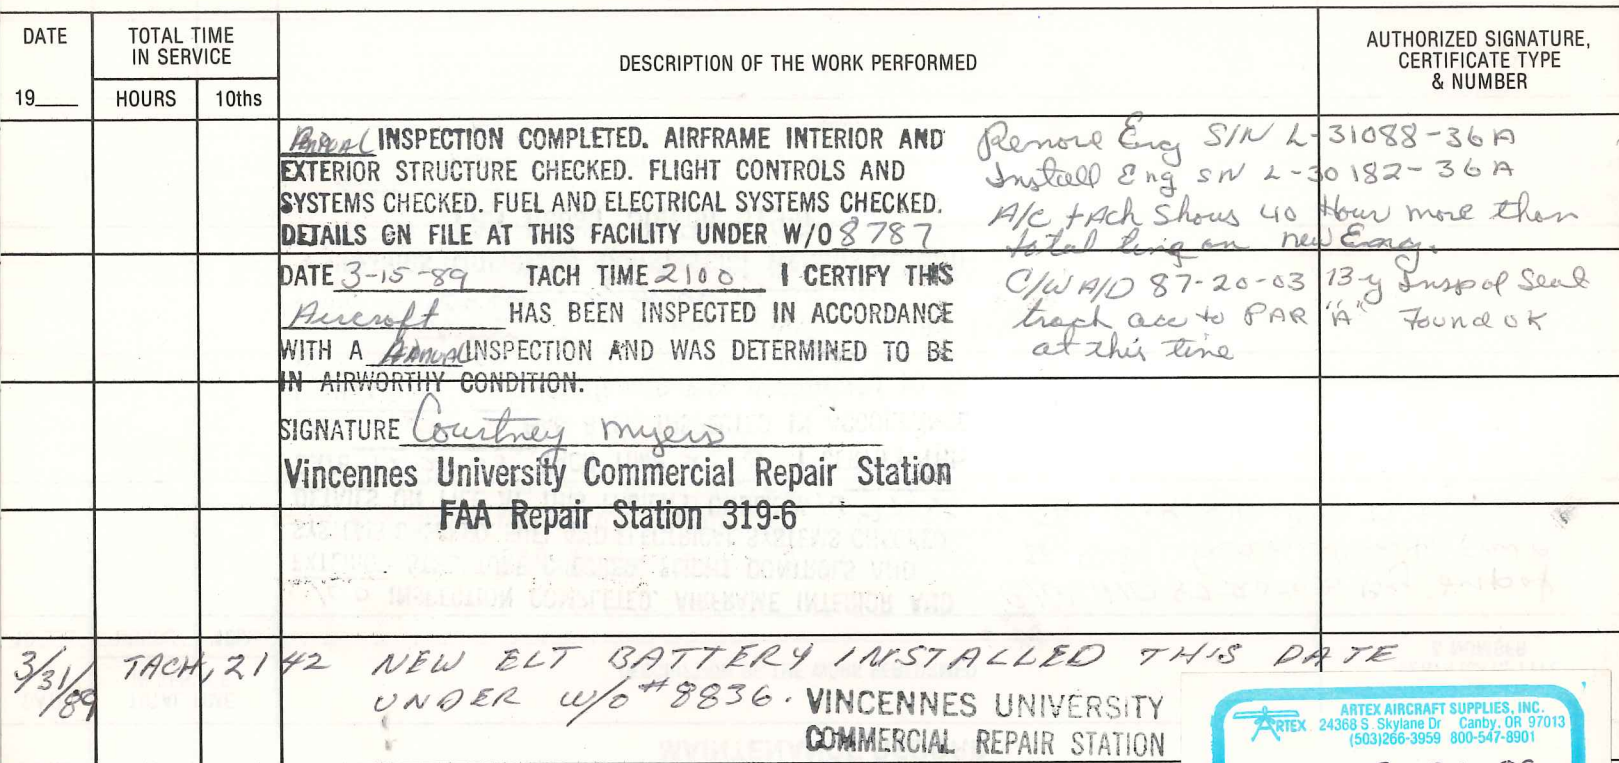 DATE
19___
TOTAL TIME
IN SERVICE
HOURS
10ths
DESCRIPTION OF THE WORK PERFORMED
AUTHORIZED SIGNATURE,
CERTIFICATE TYPE
& NUMBER
Annual INSPECTION COMPLETED. AIRFRAME INTERIOR AND
EXTERIOR STRUCTURE CHECKED. FLIGHT CONTROLS AND
SYSTEMS CHECKED. FUEL AND ELECTRICAL SYSTEMS CHECKED.
DETAILS ON FILE AT THIS FACILITY UNDER W/O 8787
DATE 3-15-89 TACH TIME 2100 I CERTIFY THIS
Aircraft HAS BEEN INSPECTED IN ACCORDANCE
WITH A Annual INSPECTION AND WAS DETERMINED TO BE
IN AIRWORTHY CONDITION.
SIGNATURE Courtney Myers
Vincennes University Commercial Repair Station
FAA Repair Station 319-6
Remove Eng S/N L-31088-36A
Install Eng SN L-30182-36A
A/C tach Shows 40 Hour more than
total time on new Eng.
C/W A/D 87-20-03 13-y Insp of Seat
track acc to PAR "A" Found OK
at this time
3/31/89 TACH, 2142 NEW ELT BATTERY INSTALLED THIS DATE
UNDER W/O #8836. VINCENNES UNIVERSITY
COMMERCIAL REPAIR STATION
ARTEX
ARTEX AIRCRAFT SUPPLIES, INC.
24368 S. Skylane Dr Canby, OR 97013
(503)266-3959 800-547-8901